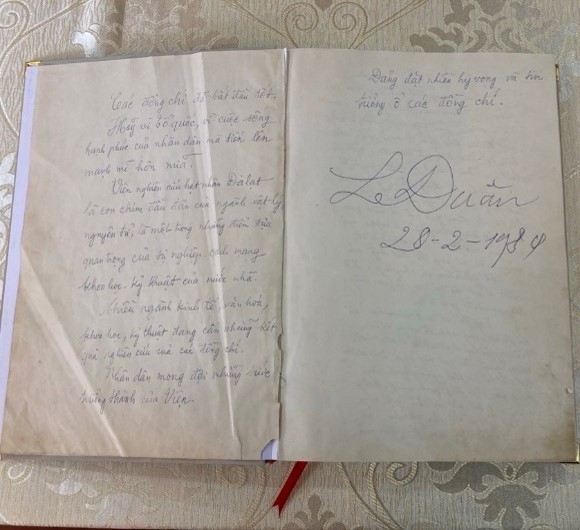 Các đồng chí đã bắt đầu tốt.
Hãy vì tổ quốc, vì cuộc sống
hạnh phúc của nhân dân mà tiến lên
mạnh mẽ hơn nữa.
Viện nghiên cứu hạt nhân Đàlạt
là con chim đầu đàn của ngành vật lý
nguyên tử, là một trong những điểm tựa
quan trọng của sự nghiệp cách mạng
khoa học - kỹ thuật của nước nhà.
Nhiều ngành kinh tế, văn hoá,
khoa học, kỹ thuật đang cần những kết
quả nghiên cứu của các đồng chí.
Nhân dân mong đợi những bước
trưởng thành của Viện.
Đảng đặt nhiều hy vọng và tin
tưởng ở các đồng chí.
Lê Duẩn
28-2-1984